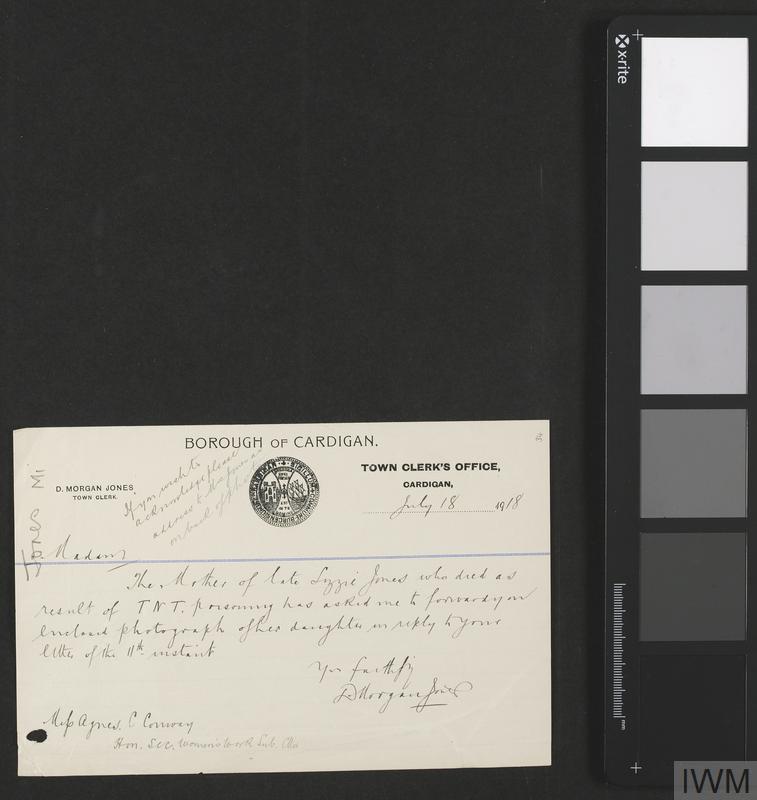 BOROUGH OF CARDIGAN.
34
D. MORGAN JONES
TOWN CLERK.
TOWN CLERK'S OFFICE,
CARDIGAN,
July 18 1918
Jones Mi
If you wish to
acknowledge please
address to the
on back of photo
Madam
The Mother of late Lizzie Jones who died as
result of T N T. poisoning has asked me to forward you
enclosed photograph of her daughter in reply to your
letter of the 11th instant
Yrs faithfy
D Morgan Jones
Miss Agnes. C Conway
Hon. Sec. Women's Work Sub. Cttee
x-rite
mm
IWM